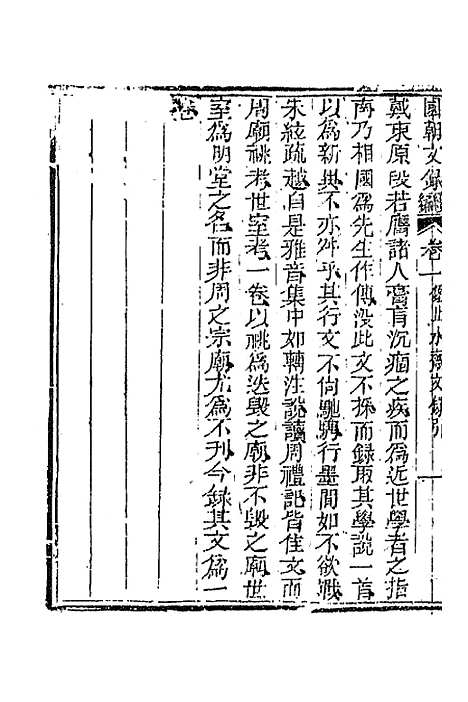 國朝文録續編　卷一　鑑止水齋文録引
戴東原段若膺諸人膏肓沉痼之疾而爲近世學者之指
南乃相國爲先生作傳没此文不採而録取其學說一首
以爲新典不亦舛乎其行文不尙馳騁行墨間如不欲戰
朱絃疏越自是雅音集中如轉注說讀周禮記皆佳文而
周廟祧考世室考一卷以祧爲迭毁之廟非不毁之廟世
室爲明堂之名而非周之宗廟尤爲不刋今録其文爲一
卷